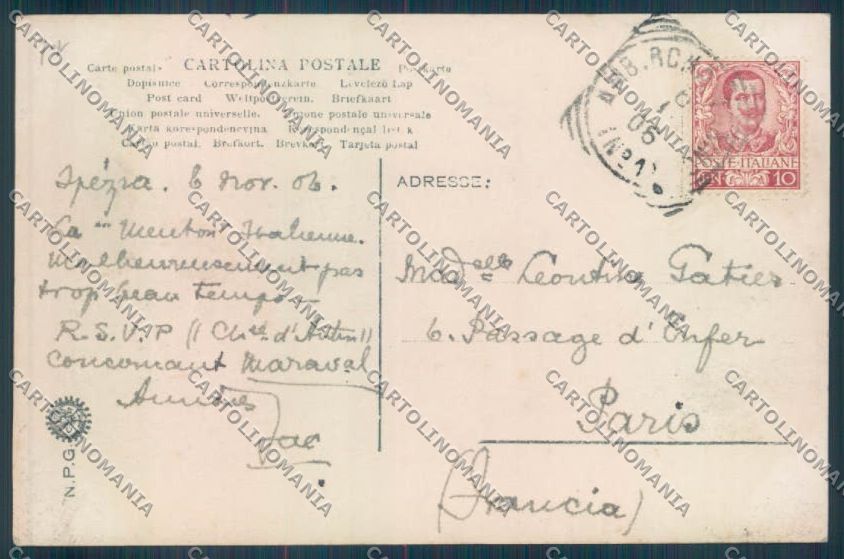 CARTOLINA POSTALE
Carte postale - Postkarte
Dopisnice Correspondenzkarte Levelező Lap
Post card Weltpostverein. Briefkaart
Union postale universelle. Unione postale universale
Karta korespondencyjna Korespondenčni listek
Carto postal. Brefkort. Brevkort. Tarjeta postal
AMB. RC. M
06
(Nº 1)
POSTE ITALIANE
CEN. 10
Spézia. 6 Nov. 06.
La "Menton" Italienne.
Malheureusement pas
trop beau temps
R.S.V.P (Ch
concernant Maraval
Amitiés
Jac
ADRESSE:
Madelle Leontine Patier
6. Passage d'Enfer
Paris
(Francia)
N.P.G.
CARTOLINOMANIA